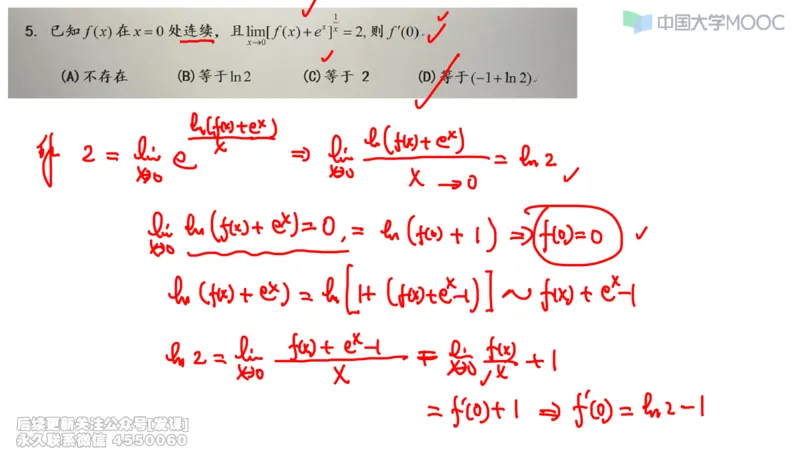 中国大学MOOC
5. 已知 f(x) 在 x=0 处连续，且 lim_{x→0}[f(x)+e^x]^{1/x}=2, 则 f′(0).
(A) 不存在 (B) 等于 ln 2 (C) 等于 2 (D) 等于 (−1+ln 2).
2 = lim_{x→0} e^{ln(f(x)+e^x)/x} ⇒ lim_{x→0} ln(f(x)+e^x)/x →0 = ln 2 ✓
lim_{x→0} ln(f(x)+e^x)=0, = ln(f(0)+1) ⇒ f(0)=0 ✓
ln(f(x)+e^x) = ln[1+(f(x)+e^x−1)] ~ f(x)+e^x−1
ln 2 = lim_{x→0} (f(x)+e^x−1)/x = lim_{x→0} f(x)/x + 1
= f′(0)+1 ⇒ f′(0) = ln 2 −1
后续更新关注公众号[发课]
永久联系微信 4550060